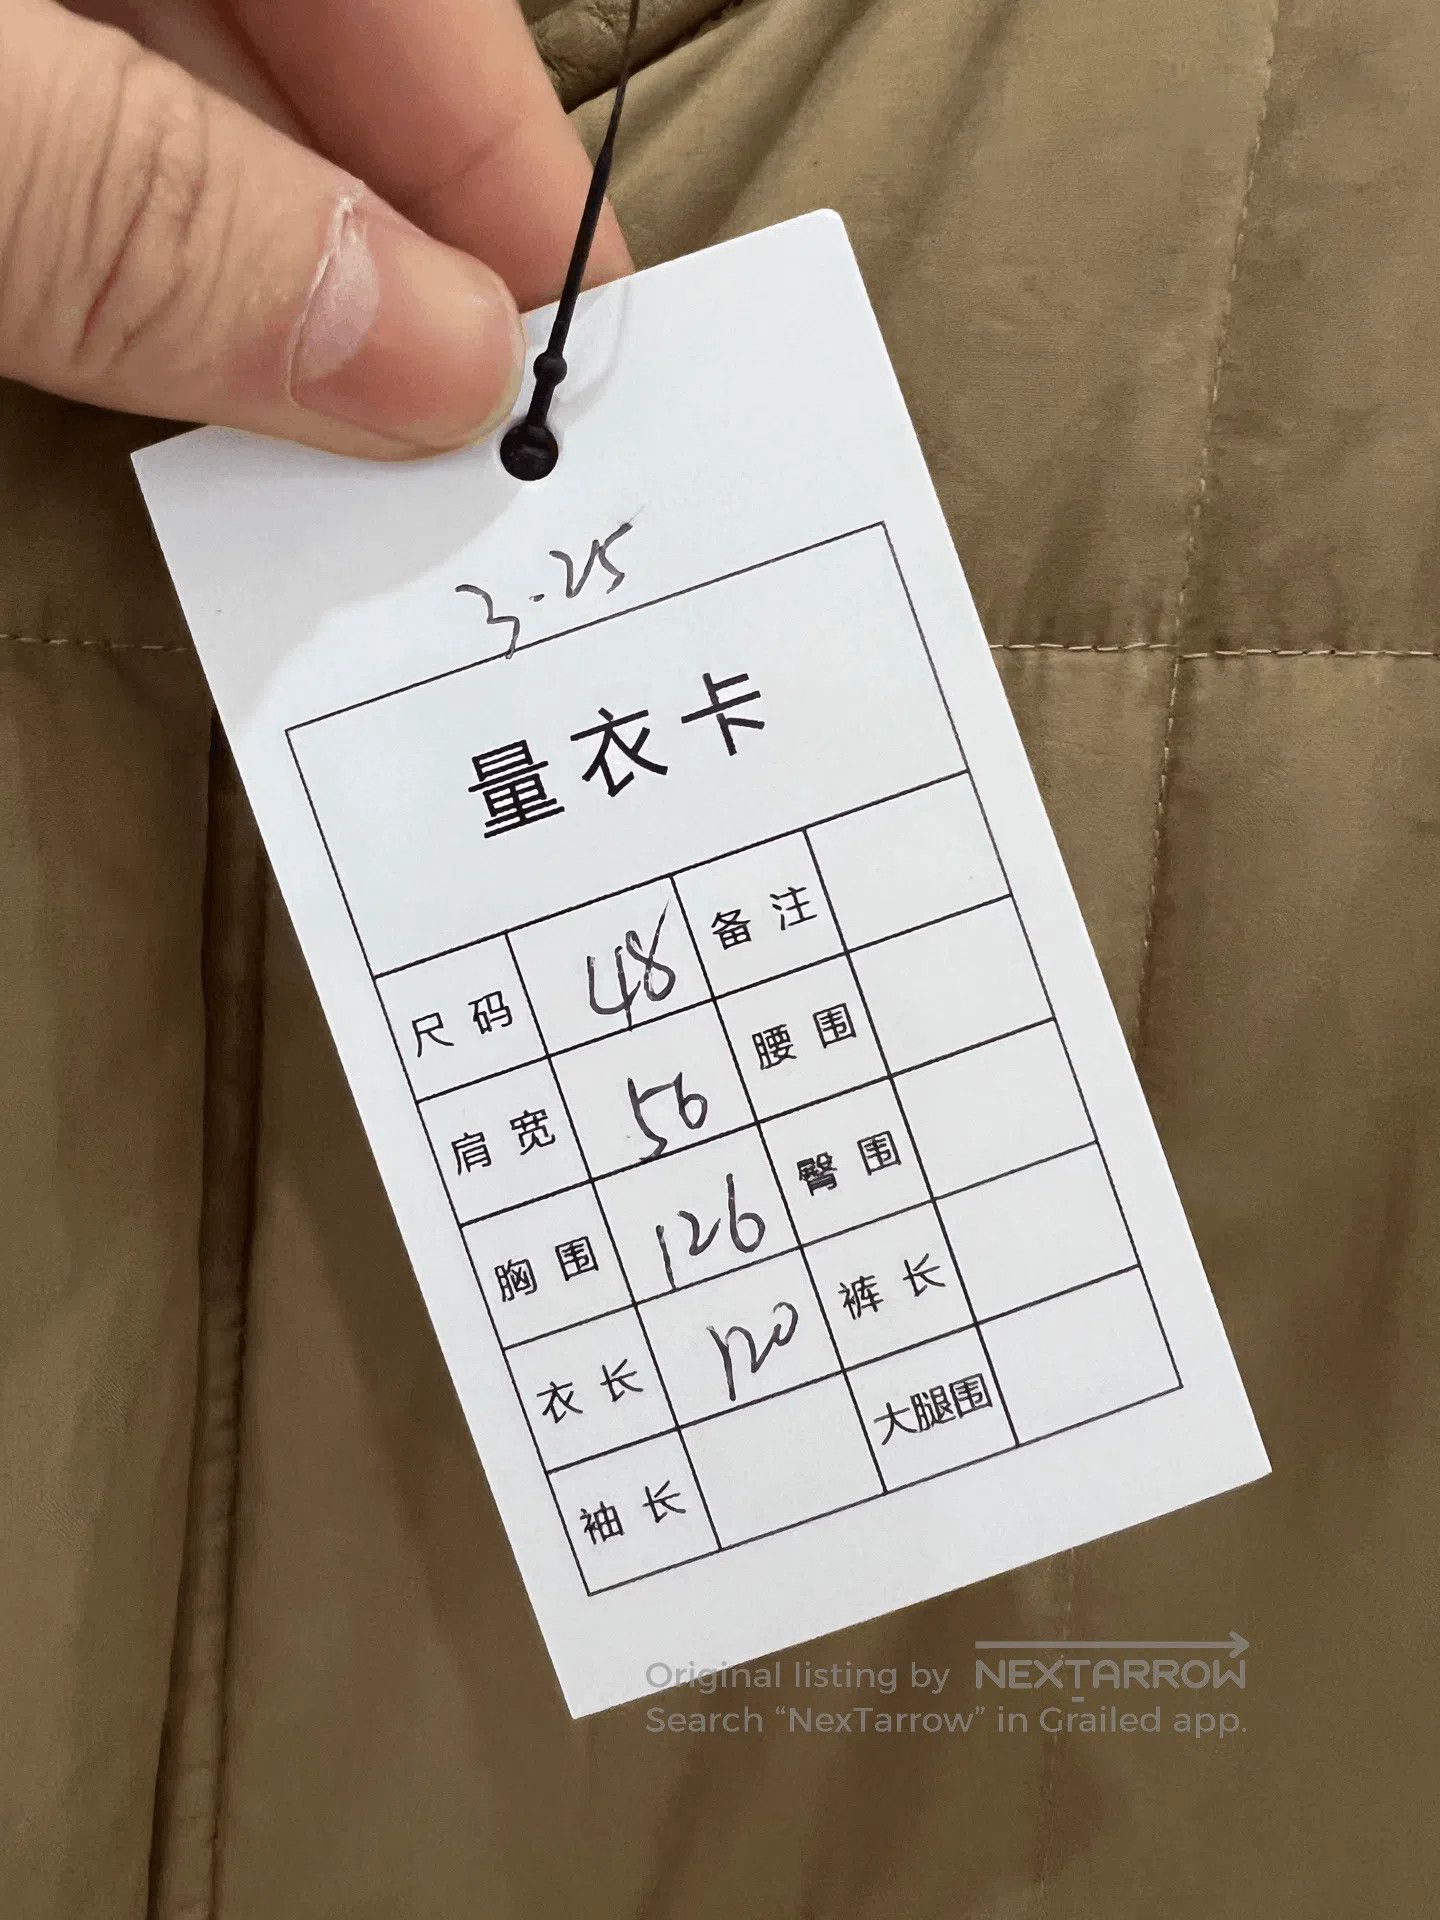 3.25
量衣卡
尺码 48 备注
肩宽 56 腰围
胸围 126 臀围
衣长 120 裤长
袖长 大腿围
Original listing by NEXTARROW
Search “NexTarrow” in Grailed app.